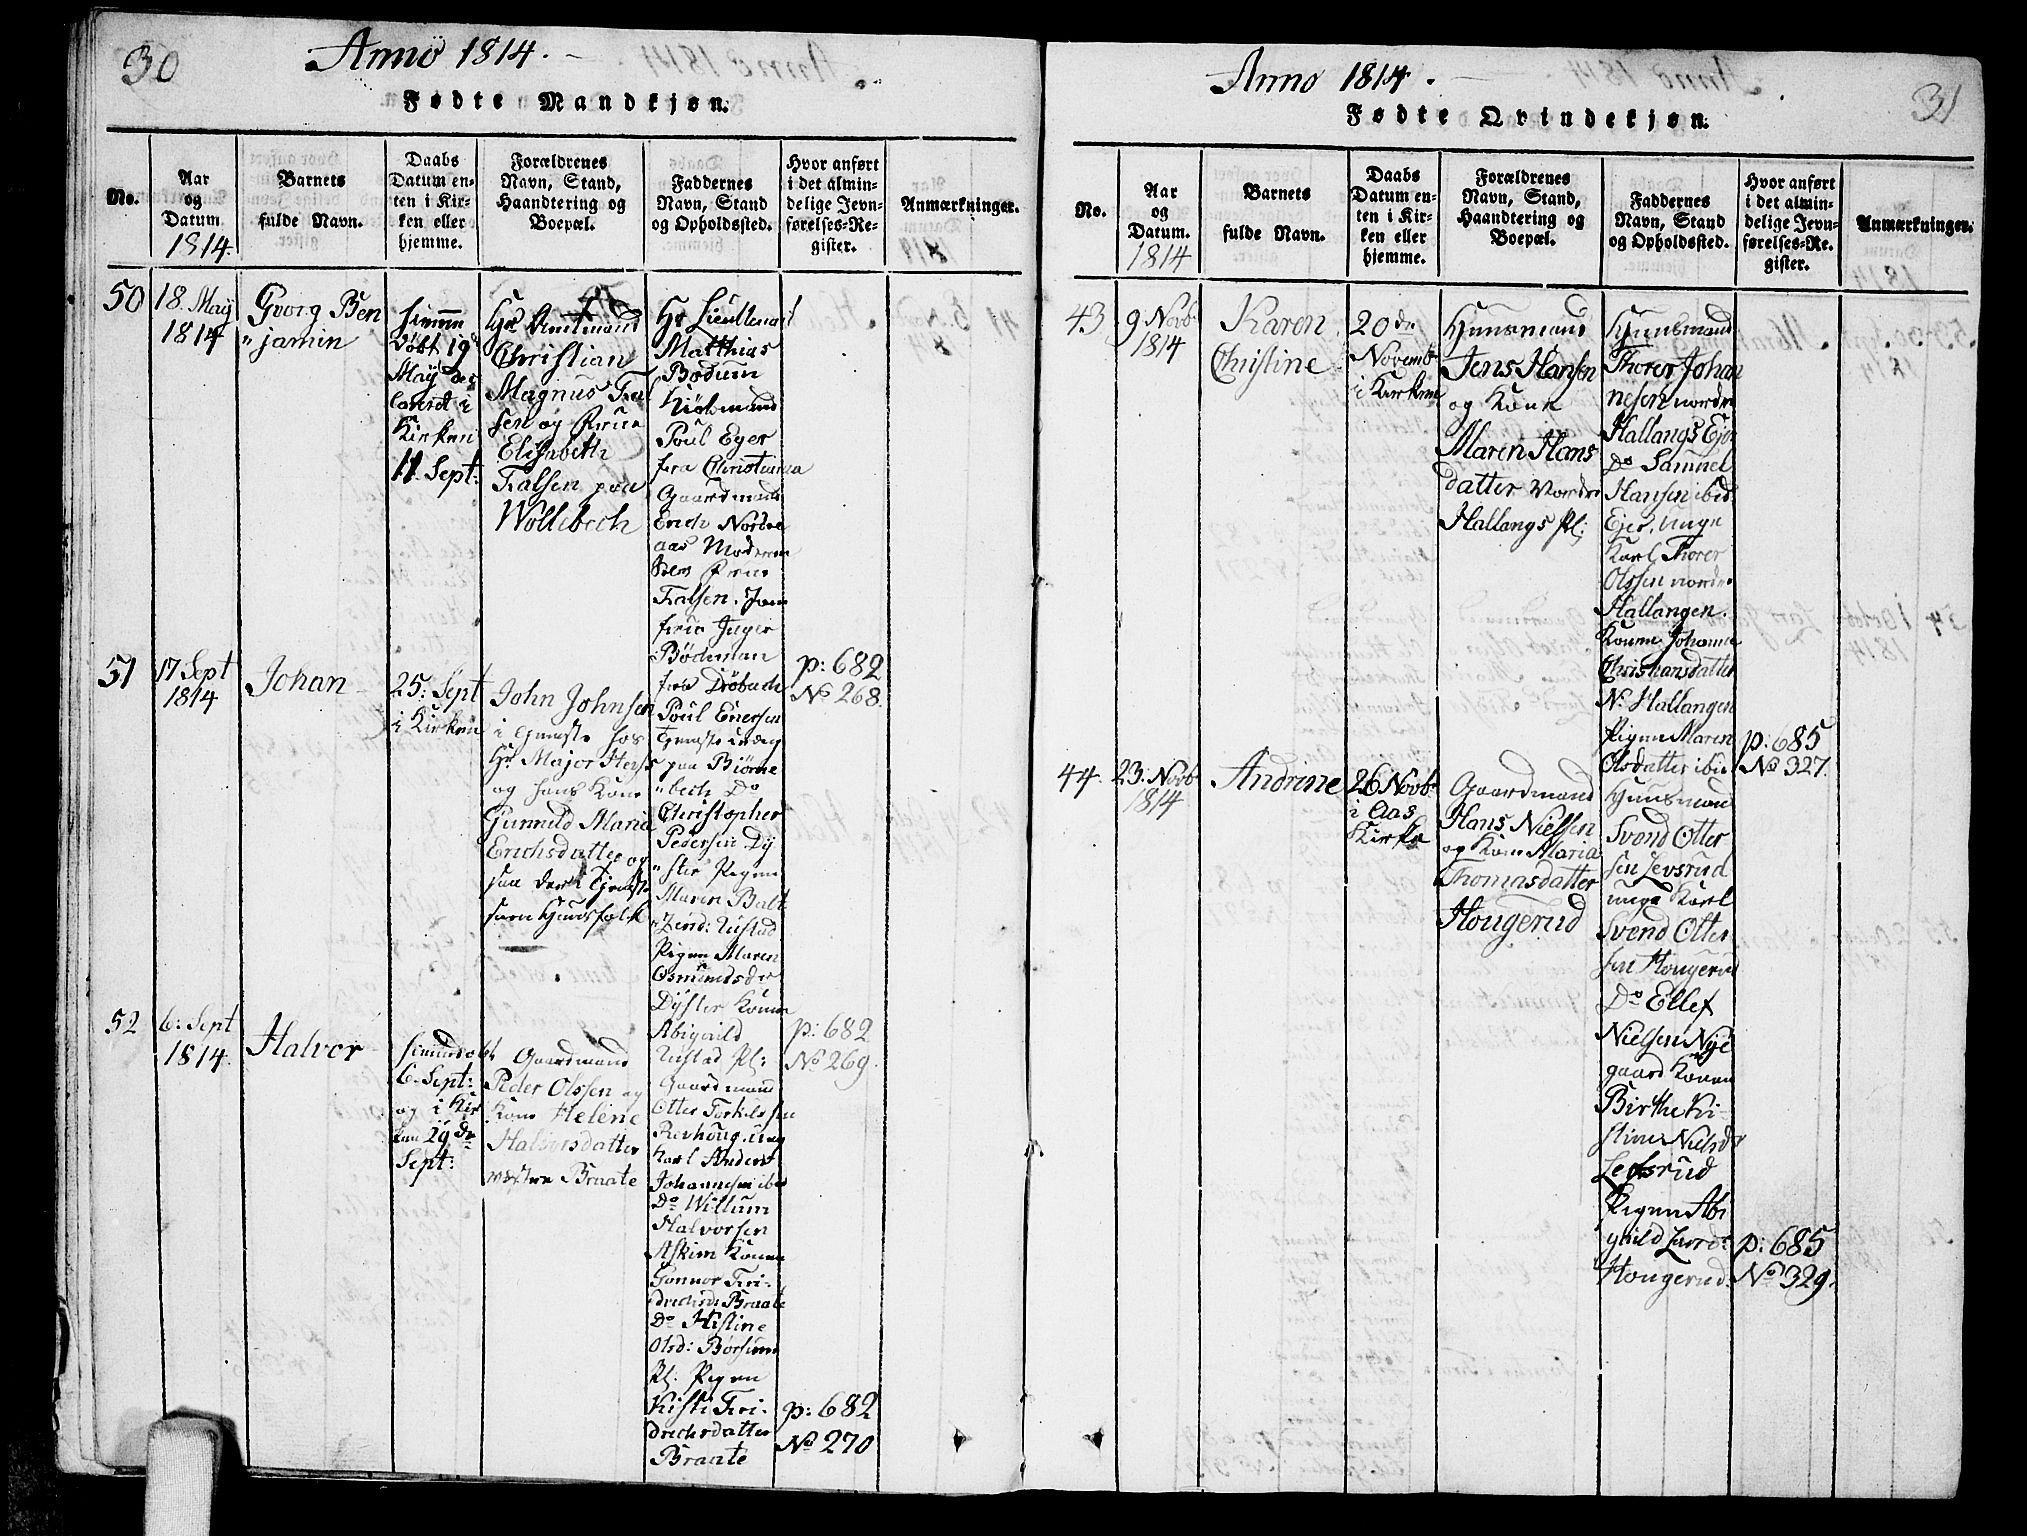 30
Anno 1814.
Fødte Mandkjøn.
No.
Aar
og
Datum.
1814.
Barnets
fulde Navn.
Daabs
Datum en-
ten i Kir-
ken eller
hjemme.
Forældrenes
Navn, Stand,
Haandtering og
Boepæl.
Faddernes
Navn, Stand
og Opholdssted.
Hvor anført
i det almin-
delige Jevn-
førelses-Re-
gister.
Anmærkninger.
50
18. May
1814
Georg Ben
" jamin
hjemme
døbt 19
May
i
Kirken
11. Sept:
Hr Amtmand
Christian
Magnus Fal
sen og Frue
Elisabeth
Falsen paa
Wollebech
Hr Lieutenant
Matthias
Bødum
Kiøbmand
Poul Eger
fra Christiania
Gaardmand
Erich Nordre
aas
Frue
Falsen. Jom
frue Inger
Bødeman
fra Drøbach
p: 682
No 268.
51
17 Sept
1814
Johan
25: Sept
i Kirken
John Johnsen
i tjeneste hos
Hr Major Hess
og hans Kone
Gunnild Maria
Erichsdatter og
saa der i tjeneste
som Huusfolk
Poul Enersen
paa Biørne
bech Do
Christopher
Pedersen Dÿ
" ster Pigen
Maren Balt
" Zersd: Ustad
Pigen Maren
Osmundsdr
Dÿster Konen
Abigaild
Ustad Pl:
p: 682
No 269.
52
6: Sept
1814.
Halvor
hjemmedøbt
6. Sept:
og i Kir
ken 29 de
Sept:
Gaardmand
Peder Olssen og
Kone Helene
Halvorsdatter
vestre Braate
Gaardmand
Otter Torkelssen
Revhoug, ung
Karl Anders
Johannesen ibid
Do Willum
Halvorsen
Askim Konen
Gonnor Fri-
drichsd: Braate
Do Kistine
Olsd: Børsum
Pl. Pigen
Kisti Fri-
drichsdatter
Braate
p: 682
No 270
31
Anno 1814.
Fødte Qvindekjøn.
No.
Aar
og
Datum.
1814
Barnets
fulde Navn.
Daabs
Datum en-
ten i Kir-
ken eller
hjemme.
Forældrenes
Navn, Stand,
Haandtering og
Boepæl.
Faddernes
Navn, Stand
og Opholdssted.
Hvor anført
i det almin-
delige Jevn-
førelses-Re-
gister.
Anmærkninger.
43
9 Novb
1814
Karen
Christine
20 de
Novemb
i Kirken
Huusmand
Jens Hansen
og Kone
Maren Hans
datter Nordre
Hallangs Pl;
Huusmand
Thorer Johan
nesen nordre
Hallangs Ejer
Do Samuel
Hansen ibid
Ejer, unge
Karl Thorer
Olssen nordre
Hallangen.
Konen Johanne
Christiansdatter
N. Hallangen
Pigen Maren
Olsdatter ibid
p: 685
No 327.
44.
23. Novb
1814
Andrine
26 Novb
i Aas
Kirke
Gaardmand
Hans Nielsen
og Kone Maria
Thomasdatter
Hougerud
Huusmand
Svend Otter
sen Levsrud
unge Karl
Svend Otter
sen Hougerud
Do Ellef
Nielsen Nÿe
gaard Konen
Birthe Ki-
stine Nielsd
Lefsrud
Pigen Abi
gaild Larsd:
Hougerud.
p: 685
No 329.